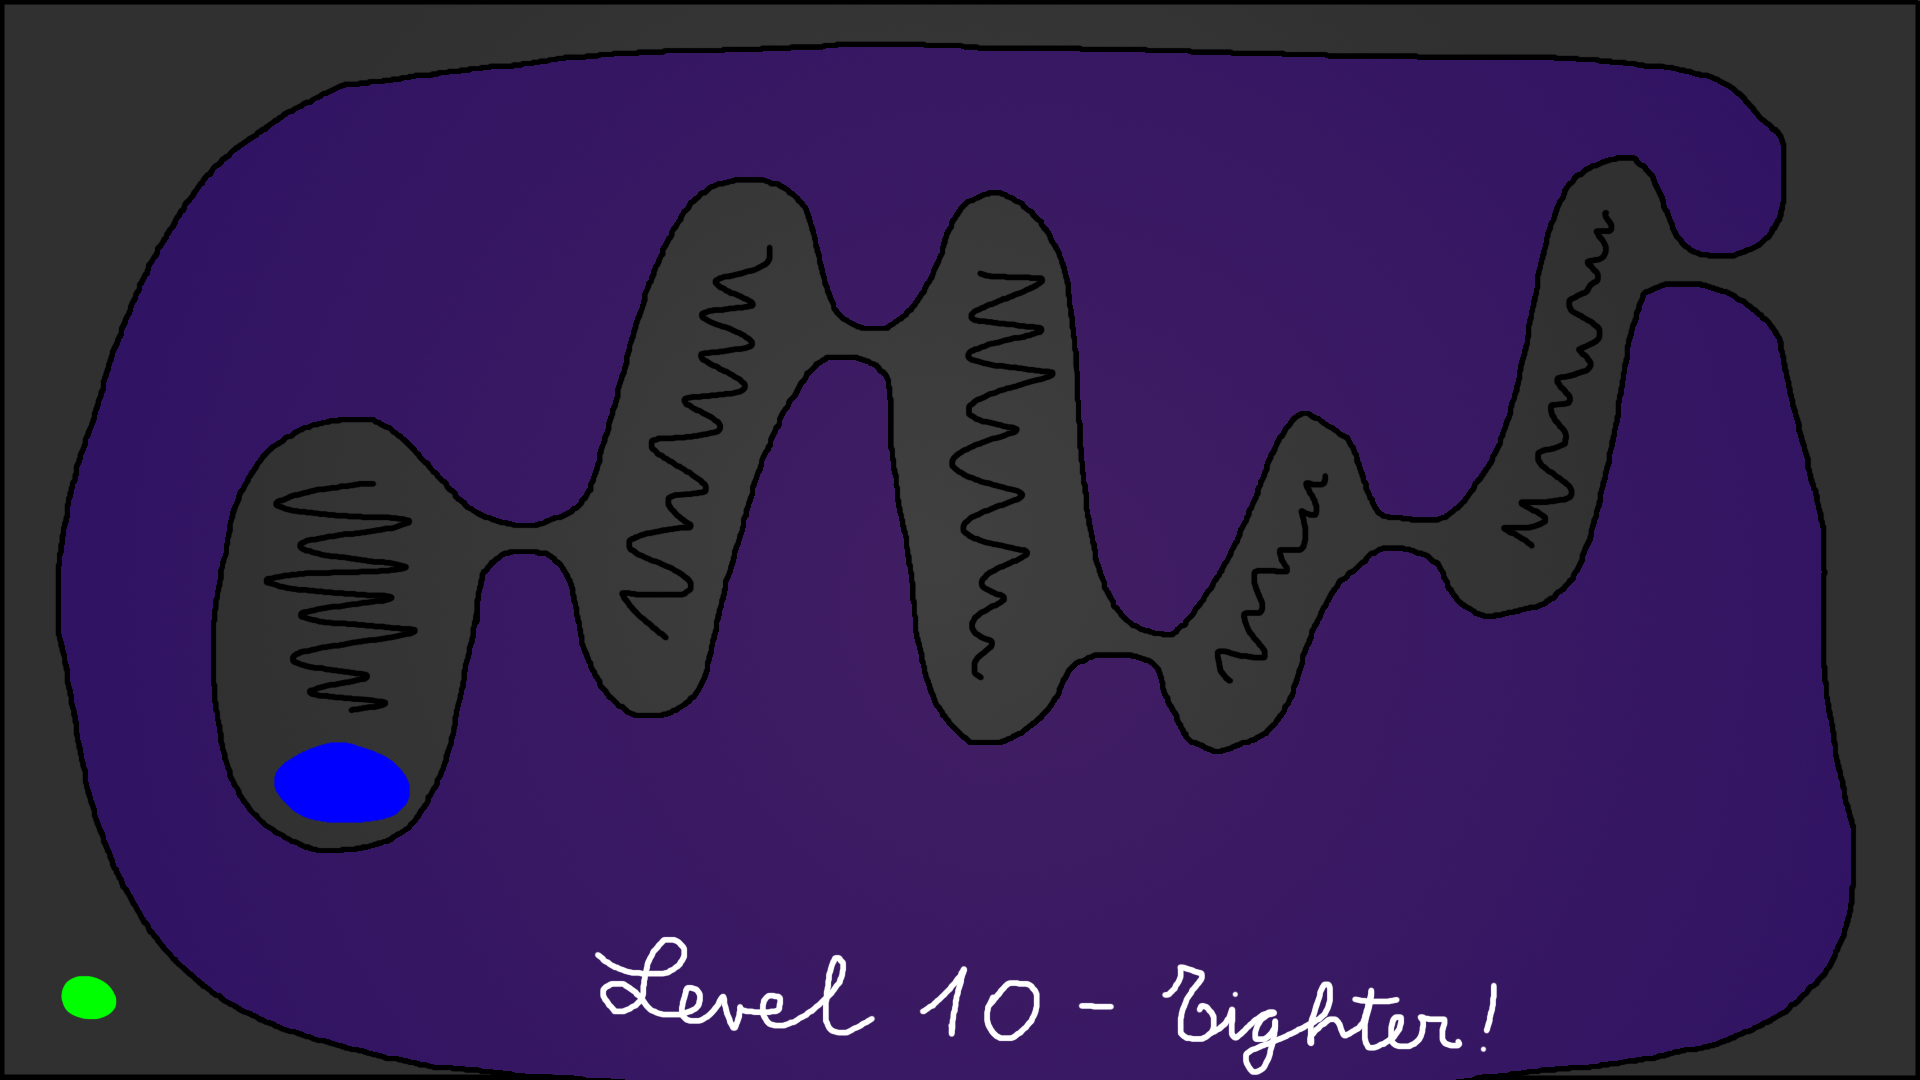 Level 10 - Tighter!